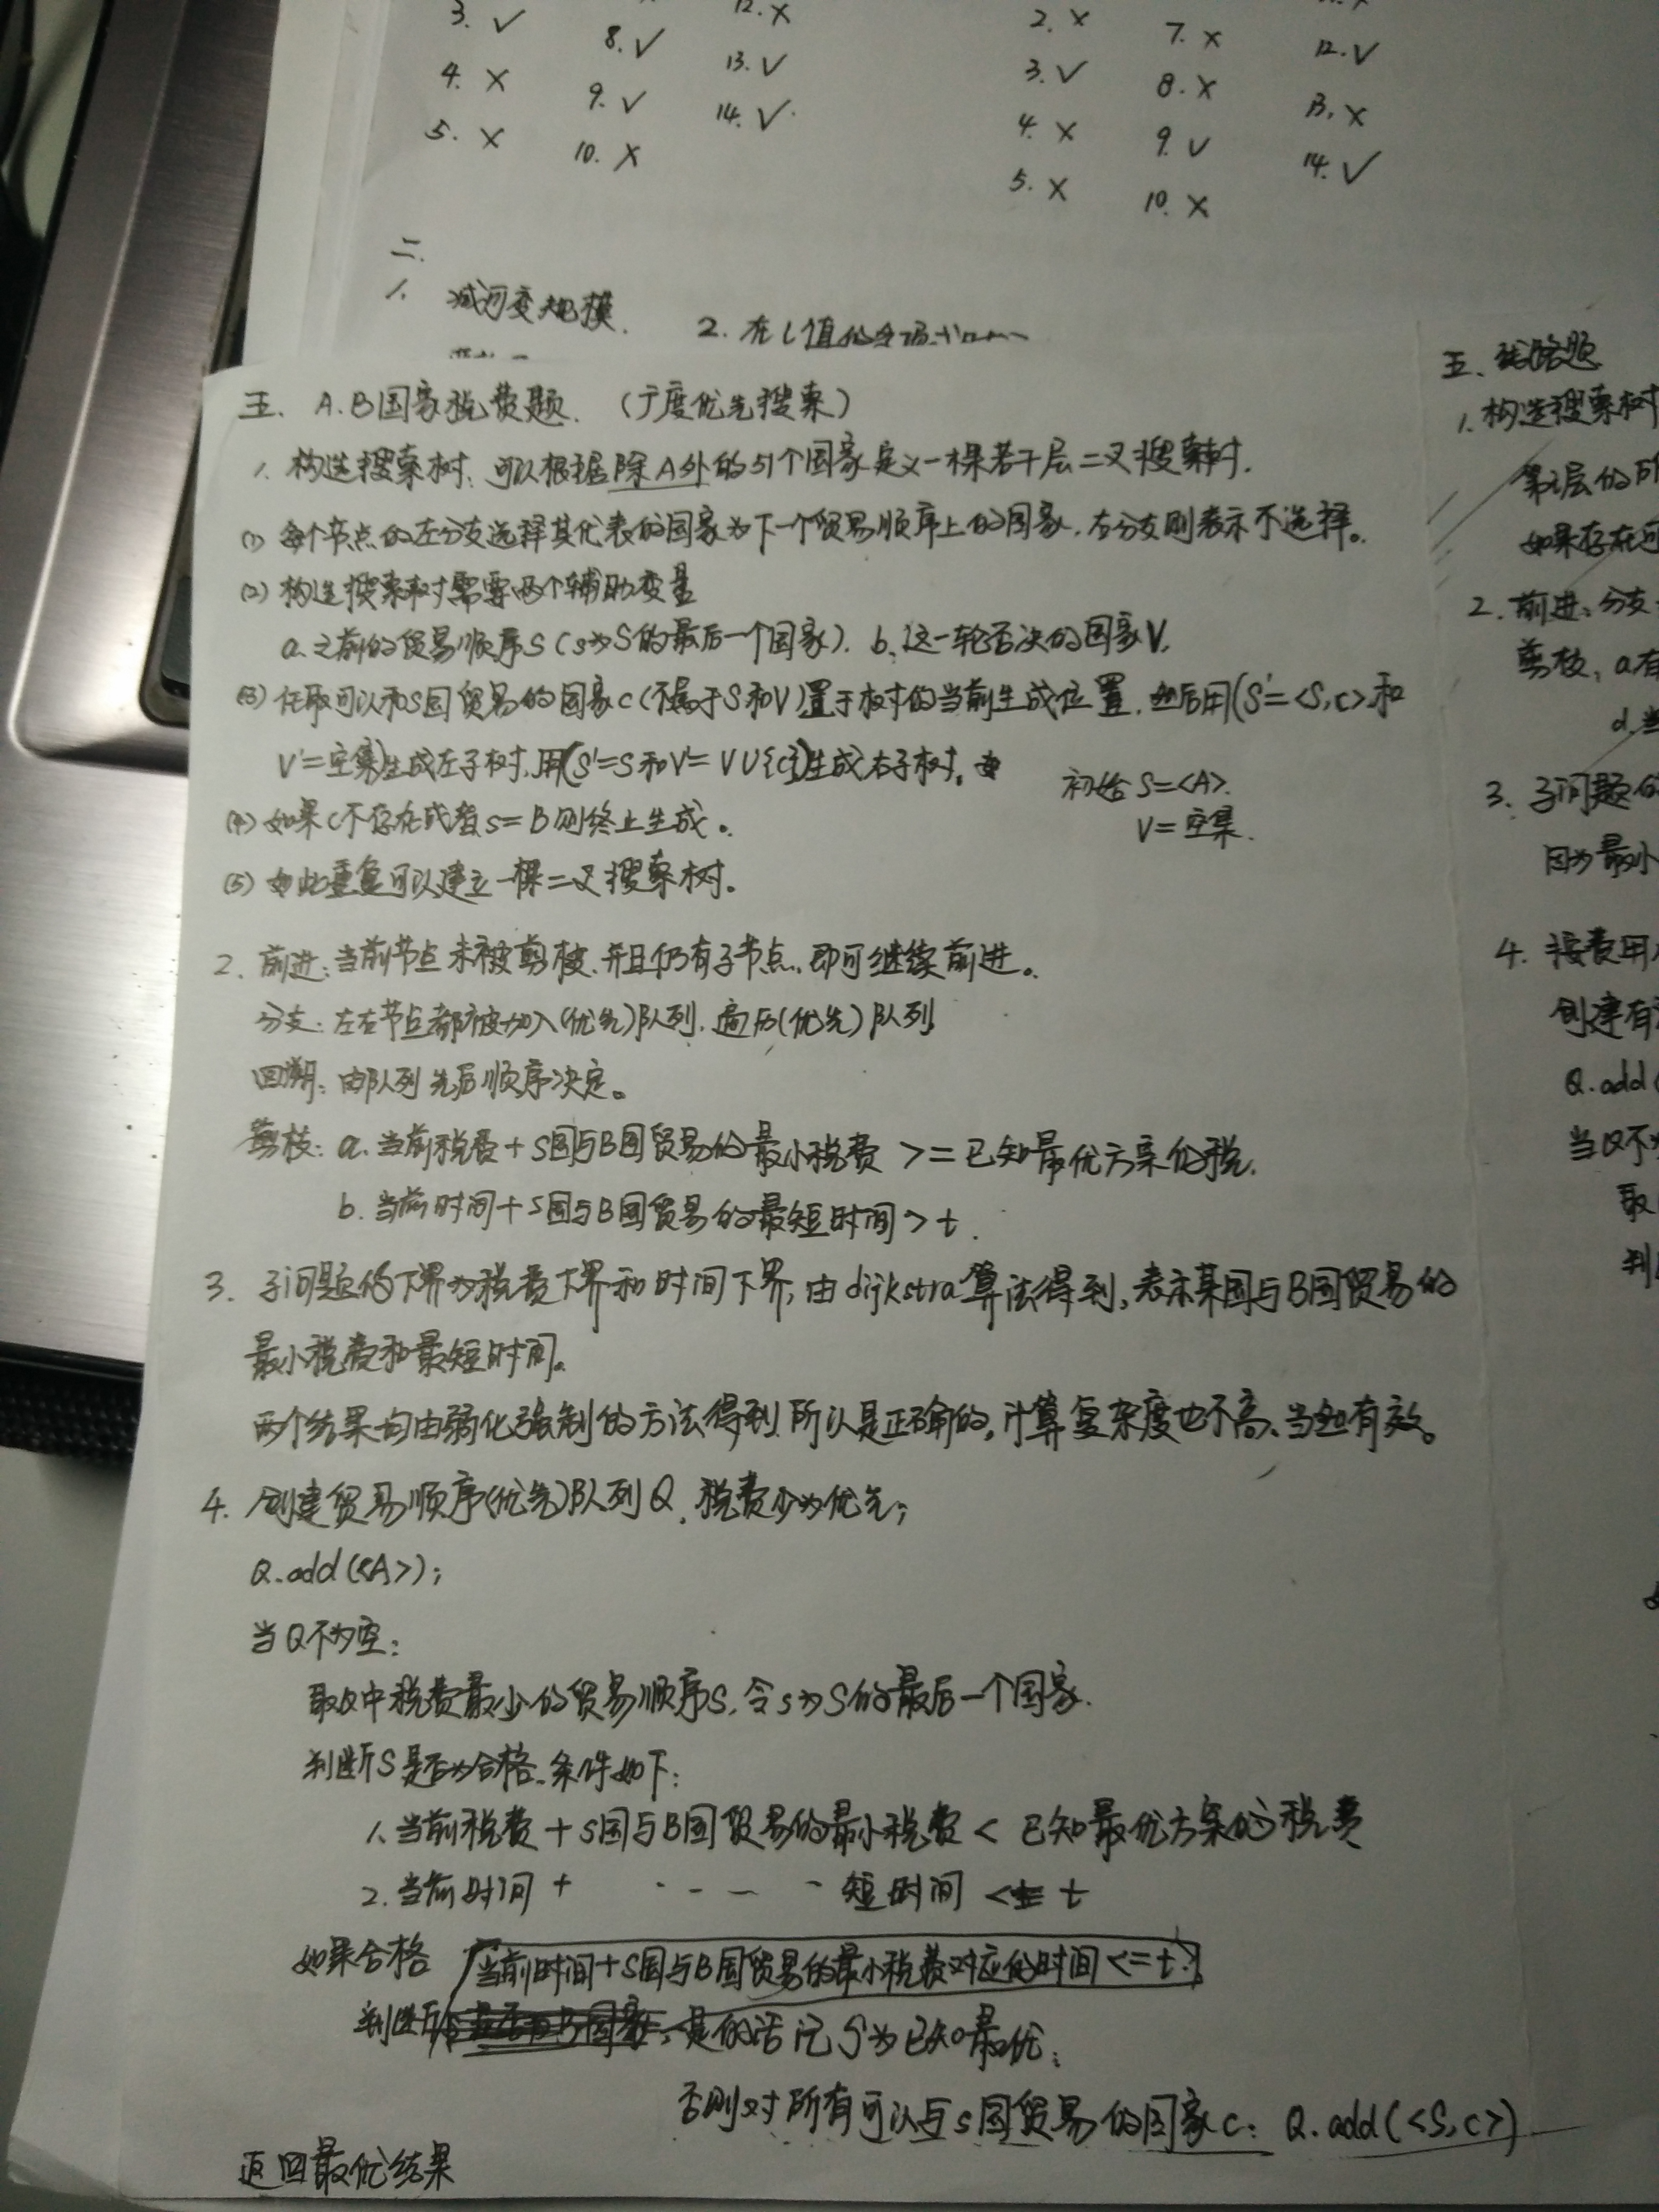 3. ✓
8. ✓
12. ×
4. ×
9. ✓
13. ✓
5. ×
10. ×
14. ✓
2. ×
7. ×
12. ✓
3. ✓
8. ×
13. ×
4. ×
9. ✓
14. ✓
5. ×
10. ×
二.
1. 减可变规模.
2. 在L值的
五. A.B国家税费题. (广度优先搜索)
1. 构造搜索树: 可以根据除A外的51个国家定义一棵若干层二叉搜索树.
(1) 每个节点的左分支选择其代表的国家为下一个贸易顺序上的国家,右分支则表示不选择。
(2) 构造搜索树需要两个辅助变量
a. 之前的贸易顺序S (s为S的最后一个国家). b. 这一轮否决的国家V.
(3) 任取可以和s国贸易的国家c(不属于S和V)置于树的当前生成位置.然后用(S'=<S,c>和
V'=空集)生成左子树,用(S'=S和V'=V∪{c})生成右子树。
初始 S=<A>.
V=空集.
(4) 如果c不存在或者s=B则终止生成。
(5) 如此重复可以建立一棵二叉搜索树。
2. 前进: 当前节点未被剪枝.并且仍有子节点,即可继续前进。
分支: 左右节点都被加入(优先)队列.遍历(优先)队列
回溯: 由队列先后顺序决定。
剪枝: a. 当前税费+s国与B国贸易的最小税费 >= 已知最优方案的税.
b. 当前时间+s国与B国贸易的最短时间 > t.
3. 子问题的下界为税费下界和时间下界,由dijkstra算法得到,表示某国与B国贸易的
最小税费和最短时间。
两个结果均由弱化强制的方法得到.所以是正确的,计算复杂度也不高、当也有效。
4. 创建贸易顺序(优先)队列Q.税费少为优先;
Q.add(<A>);
当Q不为空:
取Q中税费最少的贸易顺序S.令s为S的最后一个国家.
判断S是否为合格.条件如下:
1. 当前税费+s国与B国贸易的最小税费 < 已知最优方案的税费
2. 当前时间 + ---- 短时间 <= t
如果合格
当前时间+s国与B国贸易的最小税费对应的时间<=t
判断 是的话记S为已知最优;
否则对所有可以与s国贸易的国家c: Q.add(<S,c>)
返回最优结果
五、线路题
1. 构造搜索树
第i层的所
如果存在可
2. 前进: 分支
剪枝, a.
d. 当
3. 子问题的
因为最小
4. 按费用
创建有
Q.add(
当Q不为
取
判